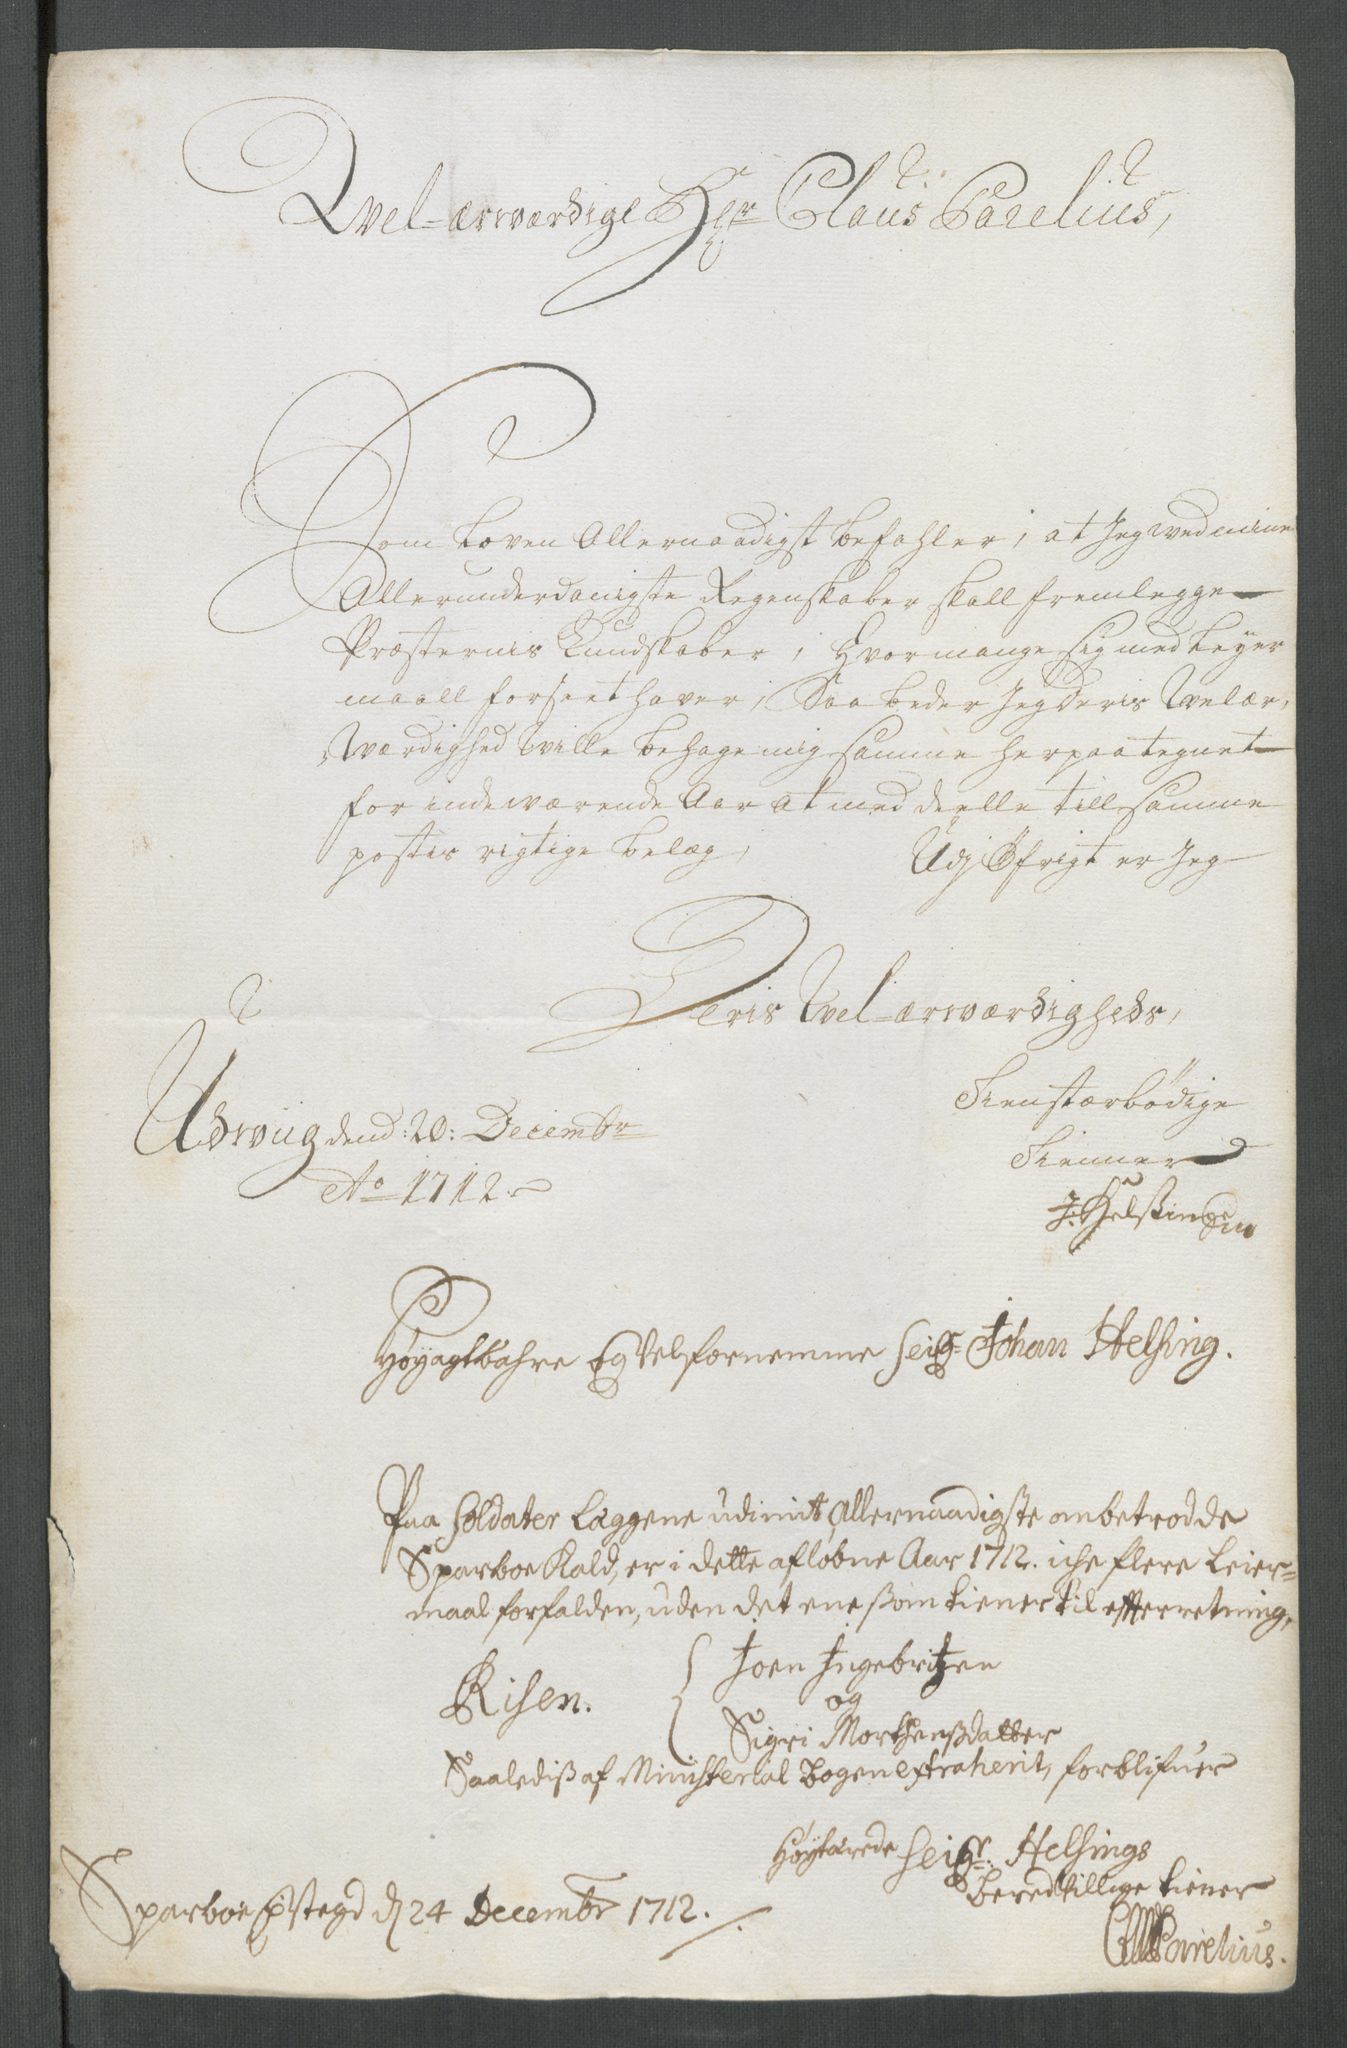 Wel-ærværdige Hr Claus Parelius,
Som Loven Allernaadigst befahler, at Jeg wed mine
Allerunderdanigste Regenskaber skall fremlegge
Præsternis Kundskaber, Hvormange sig med Leyer
maall forseet haver, Saa beder Jeg Deris Welær,
Værdighed Wille behage mig samme herpaa tegnet
for indeværende Aar at meddeelle till samme
postis rigtige belæg, Udj Öfrigt er Jeg
Deris Wel-ærværdigheds,
Tienstærbödige
Tienner
Udwiig dend: 20: Decembr
Ao 1712.
J: Helsing
Høyagtbahre Og Velfornemme Seigr Johan Helsing.
Paa Soldater Læggene udi mit Allernaadigste anbetrodde
Sparboe Kald, er i dette afløbne Aar 1712. iche flere Leier=
maal forfalden, uden det ene som tiener til efterretning,
Risen. { Joen Ingebritzen
og
Sigri Morthensdatter
Saalediss af Ministerial Bogen extraherit, forblifuer
Høytærede Seigr: Helsings
beredvillige tiener
Sparboe Prestegd d 24 Decembr 1712.
Parelius.